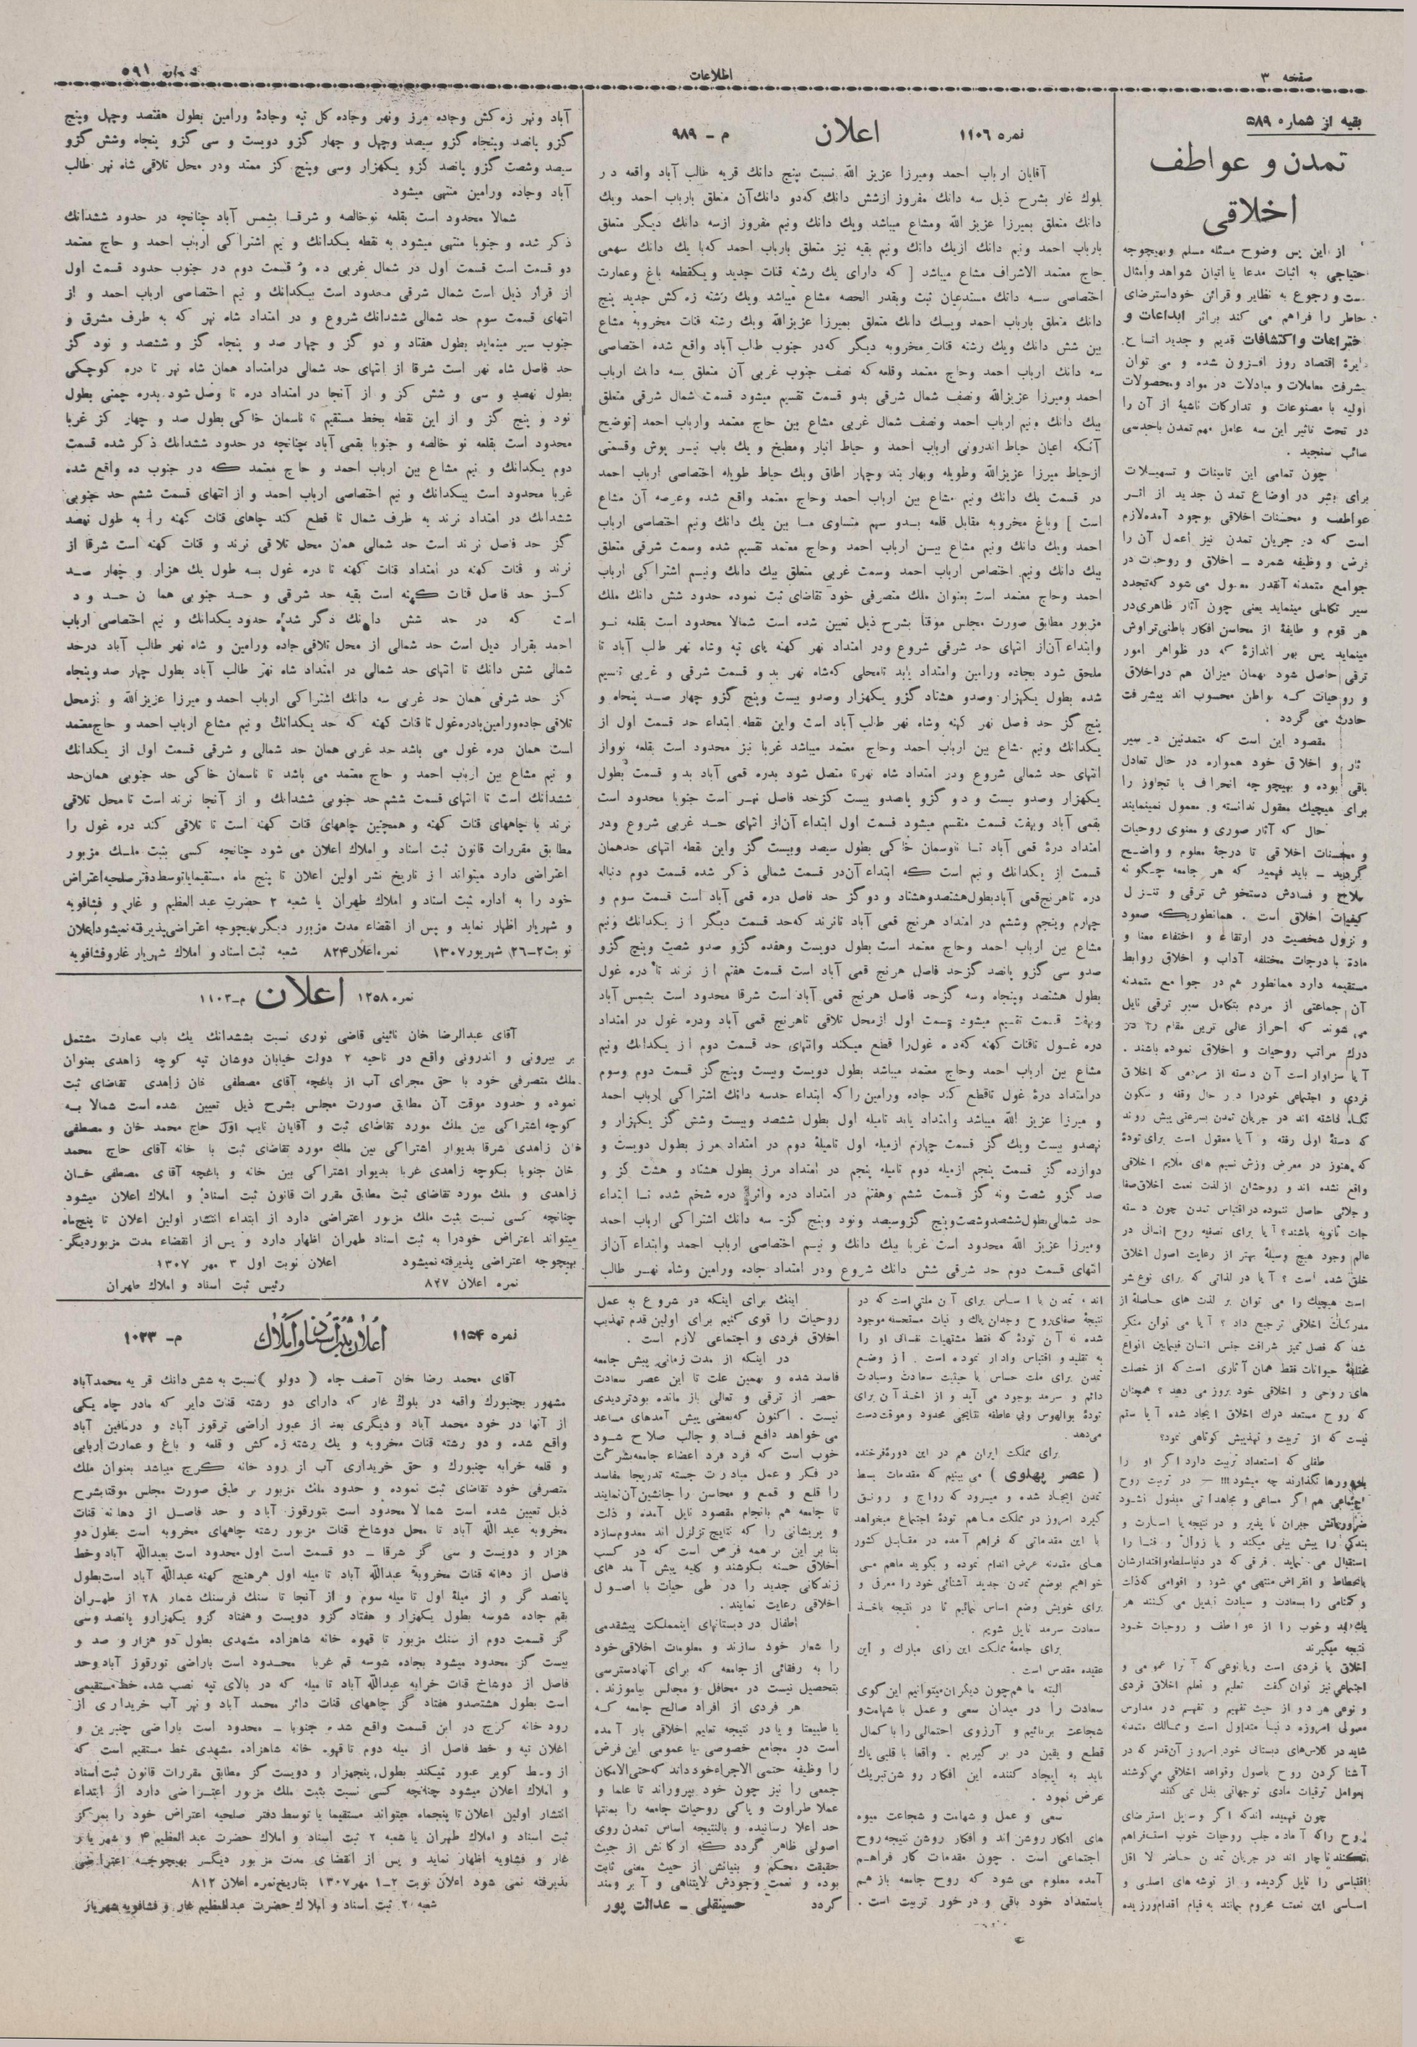 صفحه ۳
اطلاعات
شماره ۵۹۱
بقیه از شماره ۵۸۹
تمدن و عواطف
اخلاقی
از این پس وضوح مسئله مسلم وبهیچوجه
حتیاجی به اثبات مدعا یا اتیان شواهد وامثال
و رجوع به نظایر و قرائن خود استرضای
خاطر را فراهم می کند براثر ابداعات و
ختراعات واکتشافات قدیم و جدید
اقتصاد روز افزون شده و می توان
پیشرفت معاملات و مبادلات در مواد ومحصولات
اولیه با مصنوعات و تدارکات ناشیهٔ از آن را
در تحت تاثیر این سه عامل مهم تمدن باحدسی
صائب سنجید .
چون تمامی این تامینات و تسهیلات
برای بشر در اوضاع تمدن جدید از اثر
عواطف و محسنات اخلاقی بوجود آمده لازم
است که در جریان تمدن نیز اعمل آن را
فرض و وظیفه شمرد ـ اخلاق و روحیات در
جوامع متمدنه آنقدر معمول می شود که تجدد
سیر تکاملی مینماید یعنی چون آثار ظاهری در
هر قوم و طایفهٔ از محاسن افکار باطنی تراوش
مینماید پس بهر اندازهٔ که در ظواهر امور
ترقی حاصل شود بهمان میزان هم دراخلاق
و روحیات که بواطن محسوب اند پیشرفت
حادث می گردد .
مقصود این است که متمدنین در سیر
و اخلاق خود همواره در حال تعادل
باقی بوده و بهیچوجه انحراف یا تجاوز را
برای هیچیک معقول ندانسته و معمول نمینمایند
حال که آثار صوری و معنوی روحیات
و محسنات اخلاقی تا درجهٔ معلوم و واضح
گردید ـ باید فهمید که هر جامعه چگونه
صلاح و فسادش دستخوش ترقی و تنزل
کیفیات اخلاق است . همانطوریکه صعود
و نزول شخصیت در ارتقاء و اختفاء معنا و
مادة با درجات مختلفه آداب و اخلاق روابط
مستقیمه دارد همانطور هم در جوامع متمدنه
آن جماعتی از مردم بتکامل سیر ترقی نایل
می شوند که احراز عالی ترین مقام را در
درک مراتب روحیات و اخلاق نموده باشند .
آیا سزاوار است آن دسته از مردمی که اخلاق
فردی و اجتماعی خودرا در حال وقفه و سکون
نگاه داشته اند در جریان تمدن بسرعتی پیش روند
که دستهٔ اولی رفته و آیا معقول است برای تودهٔ
که هنوز در معرض وزش نسیم های ملایم اخلاقی
واقع نشده اند و روحشان از لذت نعمت اخلاق صفا
و جلائی حاصل ننموده در اقتباس تمدن چون دسته
جات ثانویه باشند؟ آیا برای تصفیه روح انسانی در
عالم وجود هیچ وسیلهٔ بهتر از رعایت اصول اخلاق
خلق شده است ؟ آیا در لذائی که برای نوع بشر
است هیچیک را می توان بر لذت های حاصلهٔ از
مدرکات اخلاقی ترجیح داد ؟ آیا می توان منکر
شد که فصل تمیز شرافت جنس انسان فیمابین انواع
مختلفهٔ حیوانات فقط همان آثاری است که از خصلت
های روحی و اخلاقی خود بروز می دهد ؟ همچنان
که روح مستعد درک اخلاق ایجاد شده آیا ستم
نیست که از تربیت و تهذیبش کوتاهی نمود؟
طفلی که استعداد تربیت دارد اگر او را
بخودرها نگذارند چه میشود!!! ـ در تربیت روح
اجتماعی هم اگر مساعی و مجاهداتی مبذول نشود
ضرورتاتش جبران نا پذیر و در نتیجه یا اسارت و
بندگی را پیش بینی میکند و یا زوال و فنا را
استقبال می نماید . فرقی که در دنیا سلطه واقتدارشان
بانحطاط و انقراض منتهی می شود و اقوامی که ذلت
و گمنامی را بسعادت و سیادت تبدیل می کنند هر
یک بد وخوب را از عواطف و روحیات خود
نتیجه میگیرند
اخلاق یا فردی است ویا نوعی که آنرا عمومی و
اجتماعی نیز توان گفت تعلیم و تعلم اخلاق فردی
و نوعی هر دو از حیث تفهیم و تفهم در مدارس
معمولی امروزه دنیا متداول است و ممالک متمدنه
شاید در کلاس‌های دبستانی خود امروز آن قدر که در
آشنا کردن روح باصول وقواعد اخلاقی میکوشند
بعوامل ترقیات مادی توجهاتی بذل نمی کنند
چون فهمیده اند که اگر وسایل استرضای
روح را که آماده جلب روحیات خوب است فراهم
نکنند ناچار اند در جریان تمدن حاضر لا اقل
اقتباسی را نایل گردیده و از توشه های اصلی و
اساسی این نعمت محروم بمانند به قیام اقدام ورزیده
نمره ۱۱۰۶ اعلان م ـ ۹۸۹
آقایان ارباب احمد ومیرزا عزیز الله نسبت پنج دانک قریه طالب آباد واقعه در
بلوک غار بشرح ذیل سه دانک مفروز ازشش دانک که دو دانک آن متعلق بارباب احمد ویک
دانک متعلق بمیرزا عزیز الله ومشاع میباشد ویک دانک ونیم مفروز ازسه دانک دیگر متعلق
بارباب احمد ونیم دانک ازیک دانک ونیم بقیه نیز متعلق بارباب احمد که با یک دانک سهمی
حاج معتمد الاشراف مشاع میباشد [ که دارای یک رشته قنات جدید و یکقطعه باغ وعمارت
اختصاصی سه دانک مستدعیان ثبت وبقدر الحصه مشاع میباشد ویک رشته زه کش جدید پنج
دانک متعلق بارباب احمد ویک دانک متعلق بمیرزا عزیزالله ویک رشته قنات مخروبه مشاع
بین شش دانک ویک رشته قنات مخروبه دیگر که در جنوب طالب آباد واقع شده اختصاصی
سه دانک ارباب احمد وحاج معتمد وقلعه که نصف جنوب غربی آن متعلق بسه دانک ارباب
احمد ومیرزا عزیزالله ونصف شمال شرقی بدو قسمت تقسیم میشود قسمت شمال شرقی متعلق
بیک دانک ونیم ارباب احمد ونصف شمال غربی مشاع بین حاج معتمد وارباب احمد [توضیح
آنکه اعیان حیاط اندرونی ارباب احمد و حیاط انبار ومطبخ و یک باب نیر پوش وقسمتی
ازحیاط میرزا عزیزالله وطویله وبهار بند وچهار اطاق ویک حیاط طویله اختصاصی ارباب احمد
در قسمت یک دانک ونیم مشاع بین ارباب احمد وحاج معتمد واقع شده وعرصه آن مشاع
است ] وباغ مخروبه مقابل قلعه بدو سهم متساوی ما بین یک دانک ونیم اختصاصی ارباب
احمد ویک دانک ونیم مشاع بین ارباب احمد وحاج معتمد تقسیم شده وسمت شرقی متعلق
بیک دانک ونیم اختصاص ارباب احمد وسمت غربی متعلق بیک دانک ونیم اشتراکی ارباب
احمد وحاج معتمد است بعنوان ملک متصرفی خود تقاضای ثبت نموده حدود شش دانک ملک
مزبور مطابق صورت مجلس موقتا بشرح ذیل تعیین شده است شمالا محدود است بقلعه نو
وابتداء آن‌از انتهای حد شرقی شروع ودر امتداد نهر کهنه پای تپه وشاه نهر طالب آباد تا
ملحق شود بجاده ورامین وامتداد یابد تامحلی که شاه نهر بدو قسمت شرقی و غربی تقسیم
شده بطول یکهزار وصدو هشتاد گزو یکهزار وصدو بیست وپنج گزو چهار صد پنجاه و
پنج گز حد فصل نهر کهنه وشاه نهر طالب آباد است واین نقطه ابتداء حد قسمت اول از
یکدانک ونیم مشاع بین ارباب احمد وحاج معتمد میباشد غربا نیز محدود است بقلعه نوواز
انتهای حد شمالی شروع ودر امتداد شاه نهرتا متصل شود بدره قمی آباد بدو قسمت بطول
یکهزار وصدو بیست و دو گزو پانصدو بیست گزحد فاصل نهر است جنوبا محدود است
بقمی آباد وبهفت قسمت منقسم میشود قسمت اول ابتداء آن‌از انتهای حد غربی شروع ودر
امتداد درهٔ قمی آباد تا تاسمان خاکی بطول سیصد وبیست گز واین نقطه انتهای حدهمان
قسمت از یکدانک و نیم است که ابتداء آن‌در قسمت شمالی ذکر شده قسمت دوم دنباله
دره تاهرنج قمی آباد بطول هشتصد وهشتاد و دو گز حد فاصل دره قمی آباد است قسمت سوم و
چهارم وپنجم وششم در امتداد هرنج قمی آباد تانرند که حد قسمت دیگر از یکدانک ونیم
مشاع بین ارباب احمد وحاج معتمد است بطول دویست وهفده گزو صدو شصت وپنج گزو
صدو سی گزو پانصد گزحد فاصل هرنج قمی آباد است قسمت هفتم از نرند تا دره غول
بطول هشتصد وپنجاه وسه گزحد فاصل هرنج قمی آباد است شرقا محدود است بشمس آباد
وبهفت قسمت تقسیم میشود قسمت اول ازمحل تلاقی تاهرنج قمی آباد ودره غول در امتداد
دره غول تاقنات کهنه که ده غول را قطع میکند وانتهای حد قسمت دوم از یکدانک ونیم
مشاع بین ارباب احمد وحاج معتمد میباشد بطول دویست وبیست وپنج گز قسمت دوم وسوم
درامتداد درهٔ غول تاقطع کند جاده ورامین راکه ابتداء حدسه دانک اشتراکی ارباب احمد
و میرزا عزیز الله میباشد وامتداد یابد تامیله اول بطول ششصد وبیست وشش گز یکهزار و
نهصدو بیست ویک گز قسمت چهارم ازمیله اول تامیلهٔ دوم در امتداد مرز بطول دویست و
دوازده گز قسمت پنجم ازمیله دوم تامیله پنجم در امتداد مرز بطول هشتاد و هشت گز و
صد گزو شصت ونه گز قسمت ششم وهفتم در امتداد دره واثری دره شخم شده تا ابتداء
حد شمالی بطول ششصدوشصت وپنج گزوسیصد ونود وپنج گز- سه دانک اشتراکی ارباب احمد
ومیرزا عزیز الله محدود است غربا بیک دانک و نیم اختصاصی ارباب احمد وابتداء آن‌از
انتهای قسمت دوم حد شرقی شش دانک شروع ودر امتداد جاده ورامین وشاه نهر طالب
آباد ونهر زه کش وجاده مرز ونهر وجاده کل تپه وجادهٔ ورامین بطول هفتصد وچهل وپنج
گزو پانصد وپنجاه گزو سیصد وچهل و چهار گزو دویست و سی گزو پنجاه وشش گزو
سیصد وشصت گزو پانصد گزو یکهزار وسی وپنج گز ممتد ودر محل تلاقی شاه نهر طالب
آباد وجاده ورامین منتهی میشود
شمالا محدود است بقلعه نوخالصه و شرقا بشمس آباد چنانچه در حدود ششدانک
ذکر شده و جنوبا منتهی میشود به نقطه یکدانک و نیم اشتراکی ارباب احمد و حاج معتمد
دو قسمت است قسمت اول در شمال غربی ده و قسمت دوم در جنوب حدود قسمت اول
از قرار ذیل است شمال شرقی محدود است بیکدانک و نیم اختصاصی ارباب احمد و از
انتهای قسمت سوم حد شمالی ششدانک شروع و در امتداد شاه نهر که به طرف مشرق و
جنوب سیر مینماید بطول هفتاد و دو گز و چهار صد و پنجاه گز و ششصد و نود گز
حد فاصل شاه نهر است شرقا از انتهای حد شمالی درامتداد همان شاه نهر تا دره کوچکی
بطول نهصد و سی و شش گز و از آنجا در امتداد دره تا وصل شود بدره چمنی بطول
نود و پنج گز و از این نقطه بخط مستقیم تا تاسمان خاکی بطول صد و چهار گز غربا
محدود است بقلعه نو خالصه و جنوبا بقمی آباد چنانچه در حدود ششدانک ذکر شده قسمت
دوم یکدانک و نیم مشاع بین ارباب احمد و حاج معتمد که در جنوب ده واقع شده
غربا محدود است بیکدانک و نیم اختصاصی ارباب احمد و از انتهای قسمت ششم حد جنوبی
ششدانک در امتداد نرند به طرف شمال تا قطع کند چاهای قنات کهنه را به طول نهصد
گز حد فصل نرند است حد شمالی همان محل تلاقی نرند و قنات کهنه است شرقا از
نرند و قنات کهنه در امتداد قنات کهنه تا دره غول بسه طول یک هزار و چهار صد
گز حد فاصل قنات کهنه است بقیه حد شرقی و حد جنوبی همان حدود
است که در حد شش دانک ذکر شده حدود یکدانک و نیم اختصاصی ارباب
احمد بقرار ذیل است حد شمالی از محل تلاقی جاده ورامین و شاه نهر طالب آباد درحد
شمالی شش دانک تا انتهای حد شمالی در امتداد شاه نهر طالب آباد بطول چهار صد وپنجاه
گز حد شرقی همان حد غربی سه دانک اشتراکی ارباب احمد و میرزا عزیزالله و ازمحل
تلاقی جاده ورامین بادره غول تا قنات کهنه که حد یکدانک و نیم مشاع ارباب احمد و حاج معتمد
است همان دره غول می باشد حد غربی همان حد شمالی و شرقی قسمت اول از یکدانک
و نیم مشاع بین ارباب احمد و حاج معتمد می باشد تا تاسمان خاکی حد جنوبی همان حد
ششدانک است تا انتهای قسمت ششم حد جنوبی ششدانک و از آنجا نرند است تا محل تلاقی
نرند با چاههای قنات کهنه و همچنین چاههای قنات کهنه است تا تلاقی کند دره غول را
مطابق مقررات قانون ثبت اسناد و املاک اعلان می شود چنانچه کسی بثبت ملک مزبور
اعتراضی دارد میتواند از تاریخ نشر اولین اعلان تا پنج ماه مستقیمایا توسط دفتر صلحیه اعتراض
خود را به اداره ثبت اسناد و املاک طهران یا شعبه ۲ حضرت عبدالعظیم و غار و فشاپویه
و شهریار اظهار نماید و پس از انقضاء مدت مزبور دیگر بهیچوجه اعتراضی پذیرفته نمیشود اعلان
نوبت ۲-۲۶ شهریور ۱۳۰۷ نمره اعلان ۸۲۴ شعبه ثبت اسناد و املاک شهریار غار وفشافویه
نمره ۱۲۵۸ اعلان م-۱۱۰۲
آقای عبدالرضا خان نائینی قاضی نوری نسبت بششدانک یک باب عمارت مشتمل
بر بیرونی و اندرونی واقع در ناحیه ۲ دولت خیابان دوشان تپه کوچه زاهدی بعنوان
ملک متصرفی خود با حق مجرای آب از باغچه آقای مصطفی خان زاهدی تقاضای ثبت
نموده و حدود موقت آن مطابق صورت مجلس بشرح ذیل تعیین شده است شمالا به
کوچه اشتراکی بین ملک مورد تقاضای ثبت و آقایان نایب اول حاج محمد خان و مصطفی
خان زاهدی شرقا بدیوار اشتراکی بین ملک مورد تقاضای ثبت با خانه آقای حاج محمد
خان جنوبا بکوچه زاهدی غربا بدیوار اشتراکی بین خانه و باغچه آقای مصطفی خان
زاهدی و ملک مورد تقاضای ثبت مطابق مقررات قانون ثبت اسناد و املاک اعلان میشود
چنانچه کسی نسبت بثبت ملک مزبور اعتراضی دارد از ابتداء انتشار اولین اعلان تا پنج‌ماه
میتواند اعتراض خودرا به ثبت اسناد طهران اظهار دارد و پس از انقضاء مدت مزبوردیگر
بهیچوجه اعتراضی پذیرفته نمیشود اعلان نوبت اول ۳ مهر ۱۳۰۷
نمره اعلان ۸۲۷ رئیس ثبت اسناد و املاک طهران
نمره ۱۱۵۴ اعلان ثبت اسناد و املاک م- ۱۰۲۳
آقای محمد رضا خان آصف جاه ( دولو ) نسبت به شش دانک قریه محمدآباد
مشهور بچنبورک واقعه در بلوک غار که دارای دو رشته قنات دایر که مادر چاه یکی
از آنها در خود محمد آباد و دیگری بعد از عبور اراضی ترقوز آباد و درمافین آباد
واقع شده و دو رشته قنات مخروبه و یک رشته زه کش و قلعه و باغ و عمارت اربابی
و قلعه خرابه چنبورک و حق خریداری آب از رود خانه کرج میباشد بعنوان ملک
متصرفی خود تقاضای ثبت نموده و حدود ملک مزبور بر طبق صورت مجلس موقتا بشرح
ذیل تعیین شده است شمالا محدود است بتورقوز آباد و حد فاصل از دهانه قنات
مخروبه عبد الله آباد تا محل دوشاخ قنات مزبور رشته چاههای مخروبه است بطول دو
هزار و دویست و سی گز شرقا ـ دو قسمت است اول محدود است بعبدالله آباد وخط
فاصل از دهانه قنات مخروبهٔ عبدالله آباد تا میله اول هرهنج کهنه عبدالله آباد است بطول
پانصد گز و از میلهٔ اول تا میله سوم و از آنجا تا سنک فرسنک شمار ۲۸ از طهران
بقم جاده شوسه بطول یکهزار و هفتاد گزو دویست و هفتاد گزو یکهزارو پانصد وسی
گز قسمت دوم از سنک مزبور تا قهوه خانه شاهزاده مشهدی بطول دو هزار و صد و
بیست گز محدود میشود بجاده شوسه قم غربا محدود است باراضی تورقوز آباد وحد
فاصل از دوشاخ قنات خرابه عبدالله آباد تا میله که در بالای تپه نصب شده خط مستقیمی
است بطول هشتصدو هفتاد گز چاههای قنات دائر محمد آباد و نهر آب خریداری از
رود خانه کرج در این قسمت واقع شده جنوبا ـ محدود است باراضی چنبرین و
اغلان تپه و خط فاصل از میله دوم تا قهوه خانه شاهزاده مشهدی خط مستقیم است که
از وسط کویر عبور میکند بطول پنجهزار و دویست گز مطابق مقررات قانون ثبت اسناد
و املاک اعلان میشود چنانچه کسی نسبت بثبت ملک مزبور اعتراضی دارد از ابتداء
انتشار اولین اعلان تا پنجماه میتواند مستقیما یا توسط دفتر صلحیه اعتراض خود را بمرکز
ثبت اسناد و املاک طهران یا شعبه ۲ ثبت اسناد و املاک حضرت عبدالعظیم و شهریار و
غار و فشاویه اظهار نماید و پس از انقضای مدت مزبور دیگر بهیچوجه اعتراضی
پذیرفته نمی شود اعلان نوبت ۲-۱ مهر ۱۳۰۷ بتاریخ نمره اعلان ۸۱۲
شعبه ۲ ثبت اسناد و املاک حضرت عبدالعظیم غار و فشافویه شهریار
اند، تمدن با اساس برای آن ملتی است که در
نتیجهٔ صفای روح وجدان پاک و نیات مستحسنه موجود
شده نه آن تودهٔ که فقط مشتهیات نفسانی او را
به تقلید و اقتباس وادار نموده است . از وضع
تمدن برای ملت حساس با حیثیت سعادت وسیادت
دائم و سرمد بوجود می آید و از اخذ آن برای
تودهٔ بوالهوس وبی عاطفه نتایجی محدود وموقت دست
میدهد .
برای مملکت ایران هم در این دوره فرخنده
( عصر پهلوی ) می بینیم که مقدمات بسط
تمدن ایجاد شده و میرود که رواج و رونق
گیرد امروز در مملکت ما هم تودهٔ اجتماع میخواهد
با این مقدماتی که فراهم آمده در مقابل کشور
های متمدنه عرض اندام نموده و بگوید ماهم می
خواهیم بوضع تمدن جدید آشنائی خود را معرفی و
برای خویش وضع اساس نمائیم تا در نتیجه باخذ
سعادت سرمد نایل شویم .
برای جامعهٔ مملکت این رای مبارک و این
عقیده مقدس است .
البته ما هم چون دیگران میتوانیم این گوی
سعادت را در میدان سعی و عمل با شهامت و
شجاعت بربائیم و آرزوی احتمالی را با کمال
قطع و یقین در بر گیریم . واقعا با قلبی پاک
باید به ایجاد کننده این افکار روشن تبریک
عرض نمود .
سعی و عمل و شهامت و شجاعت میوه
های افکار روشن اند و افکار روشن نتیجه روح
اجتماعی است . چون مقدمات کار فراهم
آمده معلوم می شود که روح جامعه باز هم
باستعداد خود باقی و درخور تربیت است .
اینک برای اینکه در شروع به عمل
روحیات را قوی کنیم برای اولین قدم تهذیب
اخلاق فردی و اجتماعی لازم است .
در اینکه از مدت زمانی پیش جامعه
فاسد شده و بهمین علت تا این عصر سعادت
حصر از ترقی و تعالی باز مانده بود تردیدی
نیست . اکنون که بعضی پیش آمدهای مساعد
می خواهد دافع فساد و جالب صلاح شود
خوب است که فرد فرد اعضاء جامعه شرکت
در فکر و عمل مبادرت جسته تدریجا مفاسد
را قلع و قمع و محاسن را جانشین آن نمایند
تا جامعه هم بانجام مقصود نایل آمده و ذلت
و پریشانی را که نتایج تزلزل اند معدوم سازد
بنا بر این بر همه فرض است که در کسب
اخلاق حسنه بکوشند و کلیه پیش آمد های
زندگانی جدید را در طی حیات با اصول
اخلاقی رعایت نمایند .
اطفال در دبستانهای اینمملکت پیشقدمی
را شعار خود سازند و معلومات اخلاقی خود
را به رفقائی از جامعه که برای آنها دسترسی
بتحصیل نیست در محافل و مجالس بیاموزند .
هر فردی از افراد صالح جامعه که
یا طبیعتا و یا در نتیجه تعلیم اخلاقی بار آمده
است در مجامع خصوصی یا عمومی این فرض
را وظیفه حتمی الاجراء خود داند که حتی الامکان
جمعی را نیز چون خود بپروراند تا علما و
عملا طراوت و پاکی روحیات جامعه را بمنتها
حد اعلا رسانیده و بالنتیجه اساس تمدن روی
اصولی ظاهر گردد که ارکانش از حیث
حقیقت محکم و بنیانش از حیث معنی ثابت
بوده و نعمت وجودش لایتناهی و آبرومند
گردد حسینقلی ـ عدالت پور